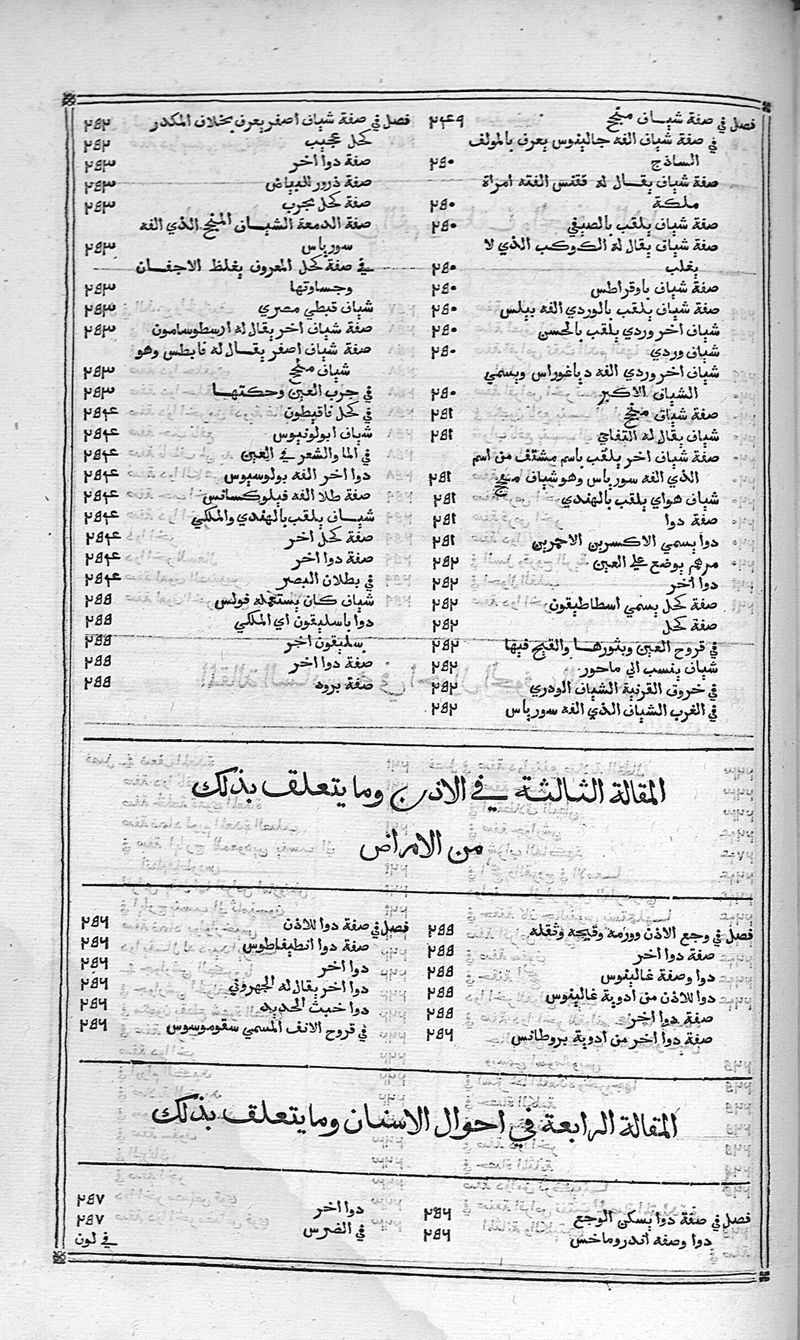 فصل في صفة شياف منجح ٢٤٩
في صفة شياف الفه جالينوس يعرف بالمولف
الساذج ٢٥٠
صفة شياف يقال له ققنس الفته امراة
ملكة ٢٥٠
صفة شياف يلقب بالصيفي ٢٥٠
صفة شياف يقال له الكوكب الذي لا
يغلب ٢٥٠
صفة شياف باوقراطس ٢٥٠
صفة شياف يلقب بالوردي الفه نيلس ٢٥٠
شياف اخر وردي يلقب بالحسن ٢٥٠
شياف وردي ٢٥٠
شياف اخر وردي الفه دياغوراس ويسمي
الشياف الاكبر ٢٥٠
صفة شياف منجح ٢٥١
شياف يقال له التفاحي ٢٥١
صفة شياف اخر يلقب باسم مشتف من اسم
الذي الفه سورياس وهو شياف منجح ٢٥١
شياف هواي يلقب بالهندي ٢٥١
صفة دوا ٢٥١
دوا يسمي الاكسرين الاحرين ٢٥١
مرهم يوضع علي العين ٢٥٢
دوا اخر ٢٥٢
صفة كحل يسمي اسطاطيقون ٢٥٢
صفة كحل ٢٥٢
في قروح العين وبثورها والقيح فيها ٢٥٢
شياف ينسب الي ماحور ٢٥٢
في خروق القرنية الشياف الوردي ٢٥٢
في الغرب الشياف الذي الفه سورياس ٢٥٢
فصل في صفة شياف اصفر يعرف بخلاف المكدر ٢٥٢
كحل عجيب ٢٥٢
صفة دوا اخر ٢٥٣
صفة ذرور للبياض ٢٥٣
صفة كحل مجرب ٢٥٣
صفة الدمعة الشياف المنجح الذي الفه
سورياس ٢٥٣
في صفة كحل المعروف بغلظ الاجفان
وجساوتها ٢٥٣
شياف قبطي مصري ٢٥٣
صفة شياف اخر يقال له ارسطوسامون ٢٥٣
صفة شياف اصفر يقال له فابطس وهو
شياف منجح ٢٥٣
في جرب العين وحكتها ٢٥٣
في كحل فاقيطون ٢٥٤
شياف ابولونيوس ٢٥٤
في الما والشعر في العين ٢٥٤
دوا اخر الفه بولوسيوس ٢٥٤
صفة طلا الفه فيلوكسانس ٢٥٤
شياف يلقب بالهندي والملكي ٢٥٤
صفة كحل اخر ٢٥٤
صفة دوا اخر ٢٥٤
في بطلان البصر ٢٥٤
شياف كان يستعمله فولس ٢٥٥
دوا باسليقون اي الملكي ٢٥٥
سليقون اخر ٢٥٥
صفة دوا اخر ٢٥٥
صفة برود ٢٥٥
المقالة الثالثة في الاذن وما يتعلق بذلك
من الامراض
فصل في وجع الاذن وورمه وقيحه وثقله ٢٥٥
صفة دوا اخر ٢٥٥
دوا وصفة غالينوس ٢٥٥
دوا للاذن من ادوية غالينوس ٢٥٥
صفة دوا اخر ٢٥٦
صفة دوا اخر من ادوية بروطانس ٢٥٦
فصل في صفة دوا للاذن ٢٥٦
صفة دوا انطيفاطوس ٢٥٦
دوا اخر ٢٥٦
دوا اخر يقال له الجهروني ٢٥٦
دوا خبث الحديد ٢٥٦
في قروح الانف المسمي سقوموسوس ٢٥٦
المقالة الرابعة في احوال الاسنان وما يتعلق بذلك
فصل في صفة دوا يسكن الوجع ٢٥٦
دوا وصفه اندروماخس ٢٥٦
دوا اخر ٢٥٧
في الضرس ٢٥٧
في لون